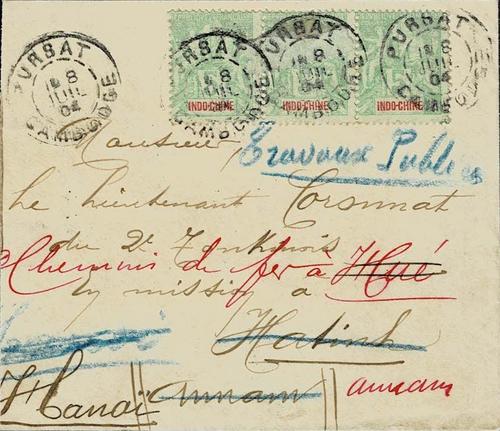 PURSAT
8
JUIL
04
CAMBODGE
PURSAT
8
JUIL
04
CAMBODGE
PURSAT
8
JUIL
04
CAMBODGE
PURSAT
8
JUIL
04
CAMBODGE
INDO-CHINE
INDO-CHINE
INDO-CHINE
Monsieur,
Travaux Publics
Le Lieutenant Corsinat
du 2e Tonkinois
Chemins de fer à Hué
en mission à
Hatinh
Hanoï annam annam